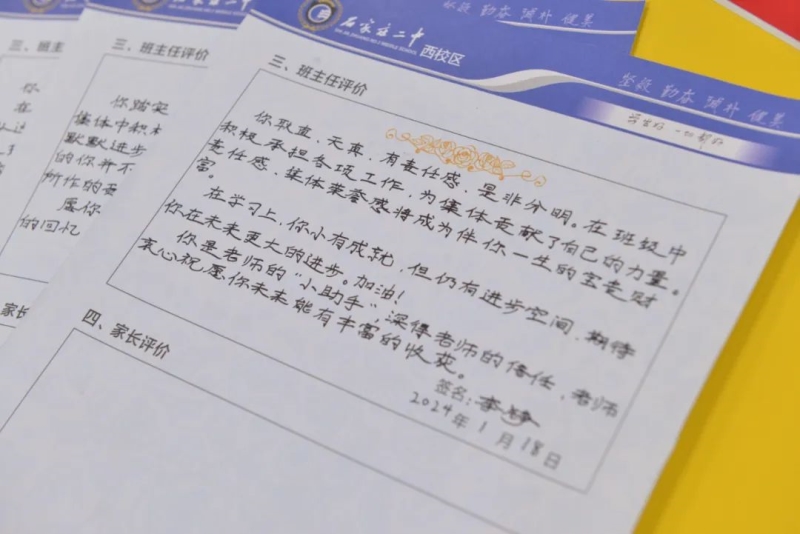 三、班主任评价
你
在
三、班主任评价
你踏实
集体中积
默默进步
的你并不
所作的
愿你
的回忆
家长评价
石家庄二中
西校区
坚毅 勤奋 诚朴 健美
三、班主任评价
你耿直、天真、有责任感,是非分明。在班级中
积极承担各项工作,为集体贡献了自己的力量。
责任感、集体荣誉感将成为伴你一生的宝贵财
富。
在学习上,你小有成就,但仍有进步空间,期待
你在未来更大的进步。加油!
你是老师的“小助手”,深得老师的信任,老师
衷心祝愿你未来能有丰富的收获。
签名:
2024年1月18日
四、家长评价